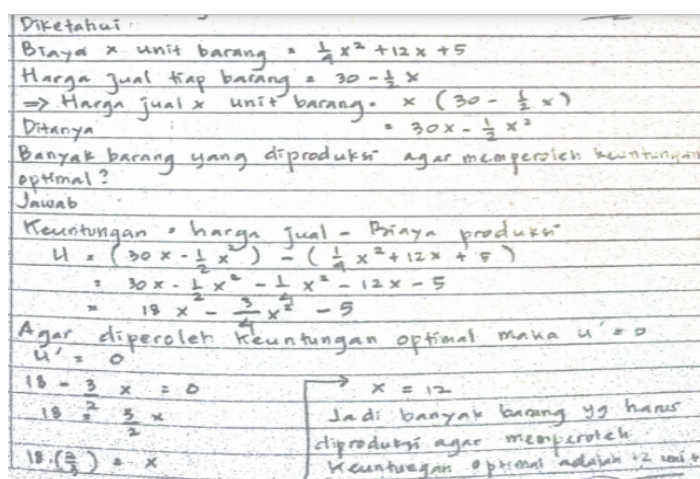 Diketahui :
Biaya x unit barang = 1/4 x² + 12x + 5
Harga jual tiap barang = 30 - 1/2 x
=> Harga jual x unit barang = x (30 - 1/2 x)
Ditanya = 30x - 1/2 x²
Banyak barang yang diproduksi agar memperoleh keuntungan
optimal?
Jawab
Keuntungan = harga jual - Biaya produksi
U = (30x - 1/2 x²) - (1/4 x² + 12x + 5)
= 30x - 1/2 x² - 1/4 x² - 12x - 5
= 18x - 3/4 x² - 5
Agar diperoleh keuntungan optimal maka u' = 0
u' = 0
18 - 3/2 x = 0
18 = 3/2 x
18.(2/3) = x
x = 12
Jadi banyak barang yg harus
diproduksi agar memperoleh
keuntungan optimal adalah 12 unit